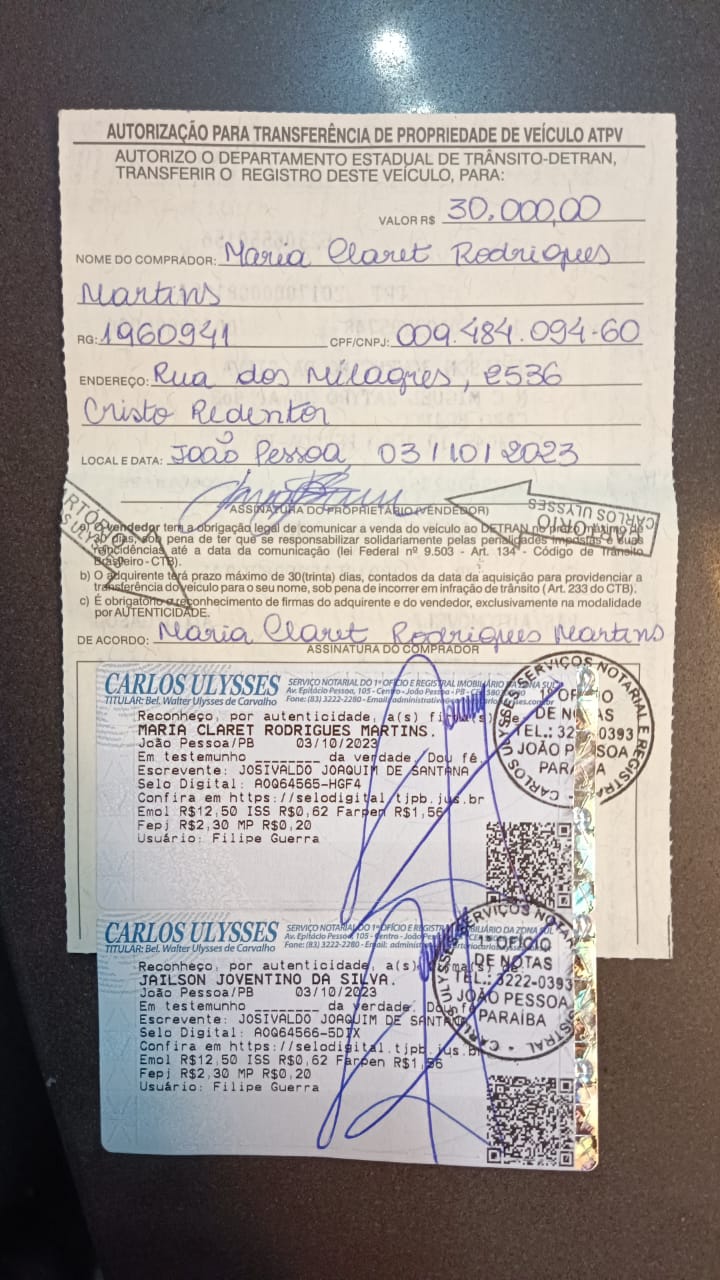 AUTORIZAÇÃO PARA TRANSFERÊNCIA DE PROPRIEDADE DE VEÍCULO ATPV
AUTORIZO O DEPARTAMENTO ESTADUAL DE TRÂNSITO-DETRAN,
TRANSFERIR O REGISTRO DESTE VEÍCULO, PARA:
VALOR R$ 30.000,00
NOME DO COMPRADOR: Maria Claret Rodrigues
Martins
RG: 1960941 CPF/CNPJ: 009.484.094-60
ENDEREÇO: Rua dos Milagres, 2536
Cristo Redentor
LOCAL E DATA: João Pessoa 03/10/2023
ASSINATURA DO PROPRIETÁRIO (VENDEDOR)
CARTÓRIO
CARLOS ULYSSES
a) O vendedor tem a obrigação legal de comunicar a venda do veículo ao DETRAN no prazo máximo de
30 dias, sob pena de ter que se responsabilizar solidariamente pelas penalidades impostas e suas
reincidências até a data da comunicação (lei Federal nº 9.503 - Art. 134 - Código de Trânsito
Brasileiro - CTB).
b) O adquirente terá prazo máximo de 30(trinta) dias, contados da data da aquisição para providenciar a
transferência do veículo para o seu nome, sob pena de incorrer em infração de trânsito (Art. 233 do CTB).
c) É obrigatório o reconhecimento de firmas do adquirente e do vendedor, exclusivamente na modalidade
por AUTENTICIDADE.
DE ACORDO: Maria Claret Rodrigues Martins
ASSINATURA DO COMPRADOR
CARLOS ULYSSES SERVIÇO NOTARIAL DO 1º OFÍCIO E REGISTRAL IMOBILIÁRIO DA ZONA SUL
TITULAR: Bel. Walter Ulysses de Carvalho Av. Epitácio Pessoa, 105 - Centro - João Pessoa - PB
Fone: (83) 3222-2280 - Email:
Reconheço, por autenticidade, a(s) firma(s) de
MARIA CLARET RODRIGUES MARTINS.
João Pessoa/PB 03/10/2023
Em testemunho ________ da verdade. Dou fé.
Escrevente: JOSIVALDO JOAQUIM DE SANTANA
Selo Digital: AOQ64565-HGF4
Confira em https://selodigital.tjpb.jus.br
Emol R$12,50 ISS R$0,62 Farpen R$1,56
Fepj R$2,30 MP R$0,20
Usuário: Filipe Guerra
CARLOS ULYSSES SERVIÇOS NOTARIAL E REGISTRAL
1º OFÍCIO
DE NOTAS
TEL.: 3222-0393
JOÃO PESSOA
PARAÍBA
CARLOS ULYSSES SERVIÇO NOTARIAL DO 1º OFÍCIO E REGISTRAL IMOBILIÁRIO DA ZONA SUL
TITULAR: Bel. Walter Ulysses de Carvalho Av. Epitácio Pessoa, 105 - Centro - João Pessoa
Fone: (83) 3222-2280 - Email:
Reconheço, por autenticidade, a(s) firma(s) de
JAILSON JOVENTINO DA SILVA.
João Pessoa/PB 03/10/2023
Em testemunho ________ da verdade. Dou fé.
Escrevente: JOSIVALDO JOAQUIM DE SANTANA
Selo Digital: AOQ64566-5DIX
Confira em https://selodigital.tjpb.jus.br
Emol R$12,50 ISS R$0,62 Farpen R$1,56
Fepj R$2,30 MP R$0,20
Usuário: Filipe Guerra
1º OFÍCIO
DE NOTAS
TEL.: 3222-0393
JOÃO PESSOA
PARAÍBA